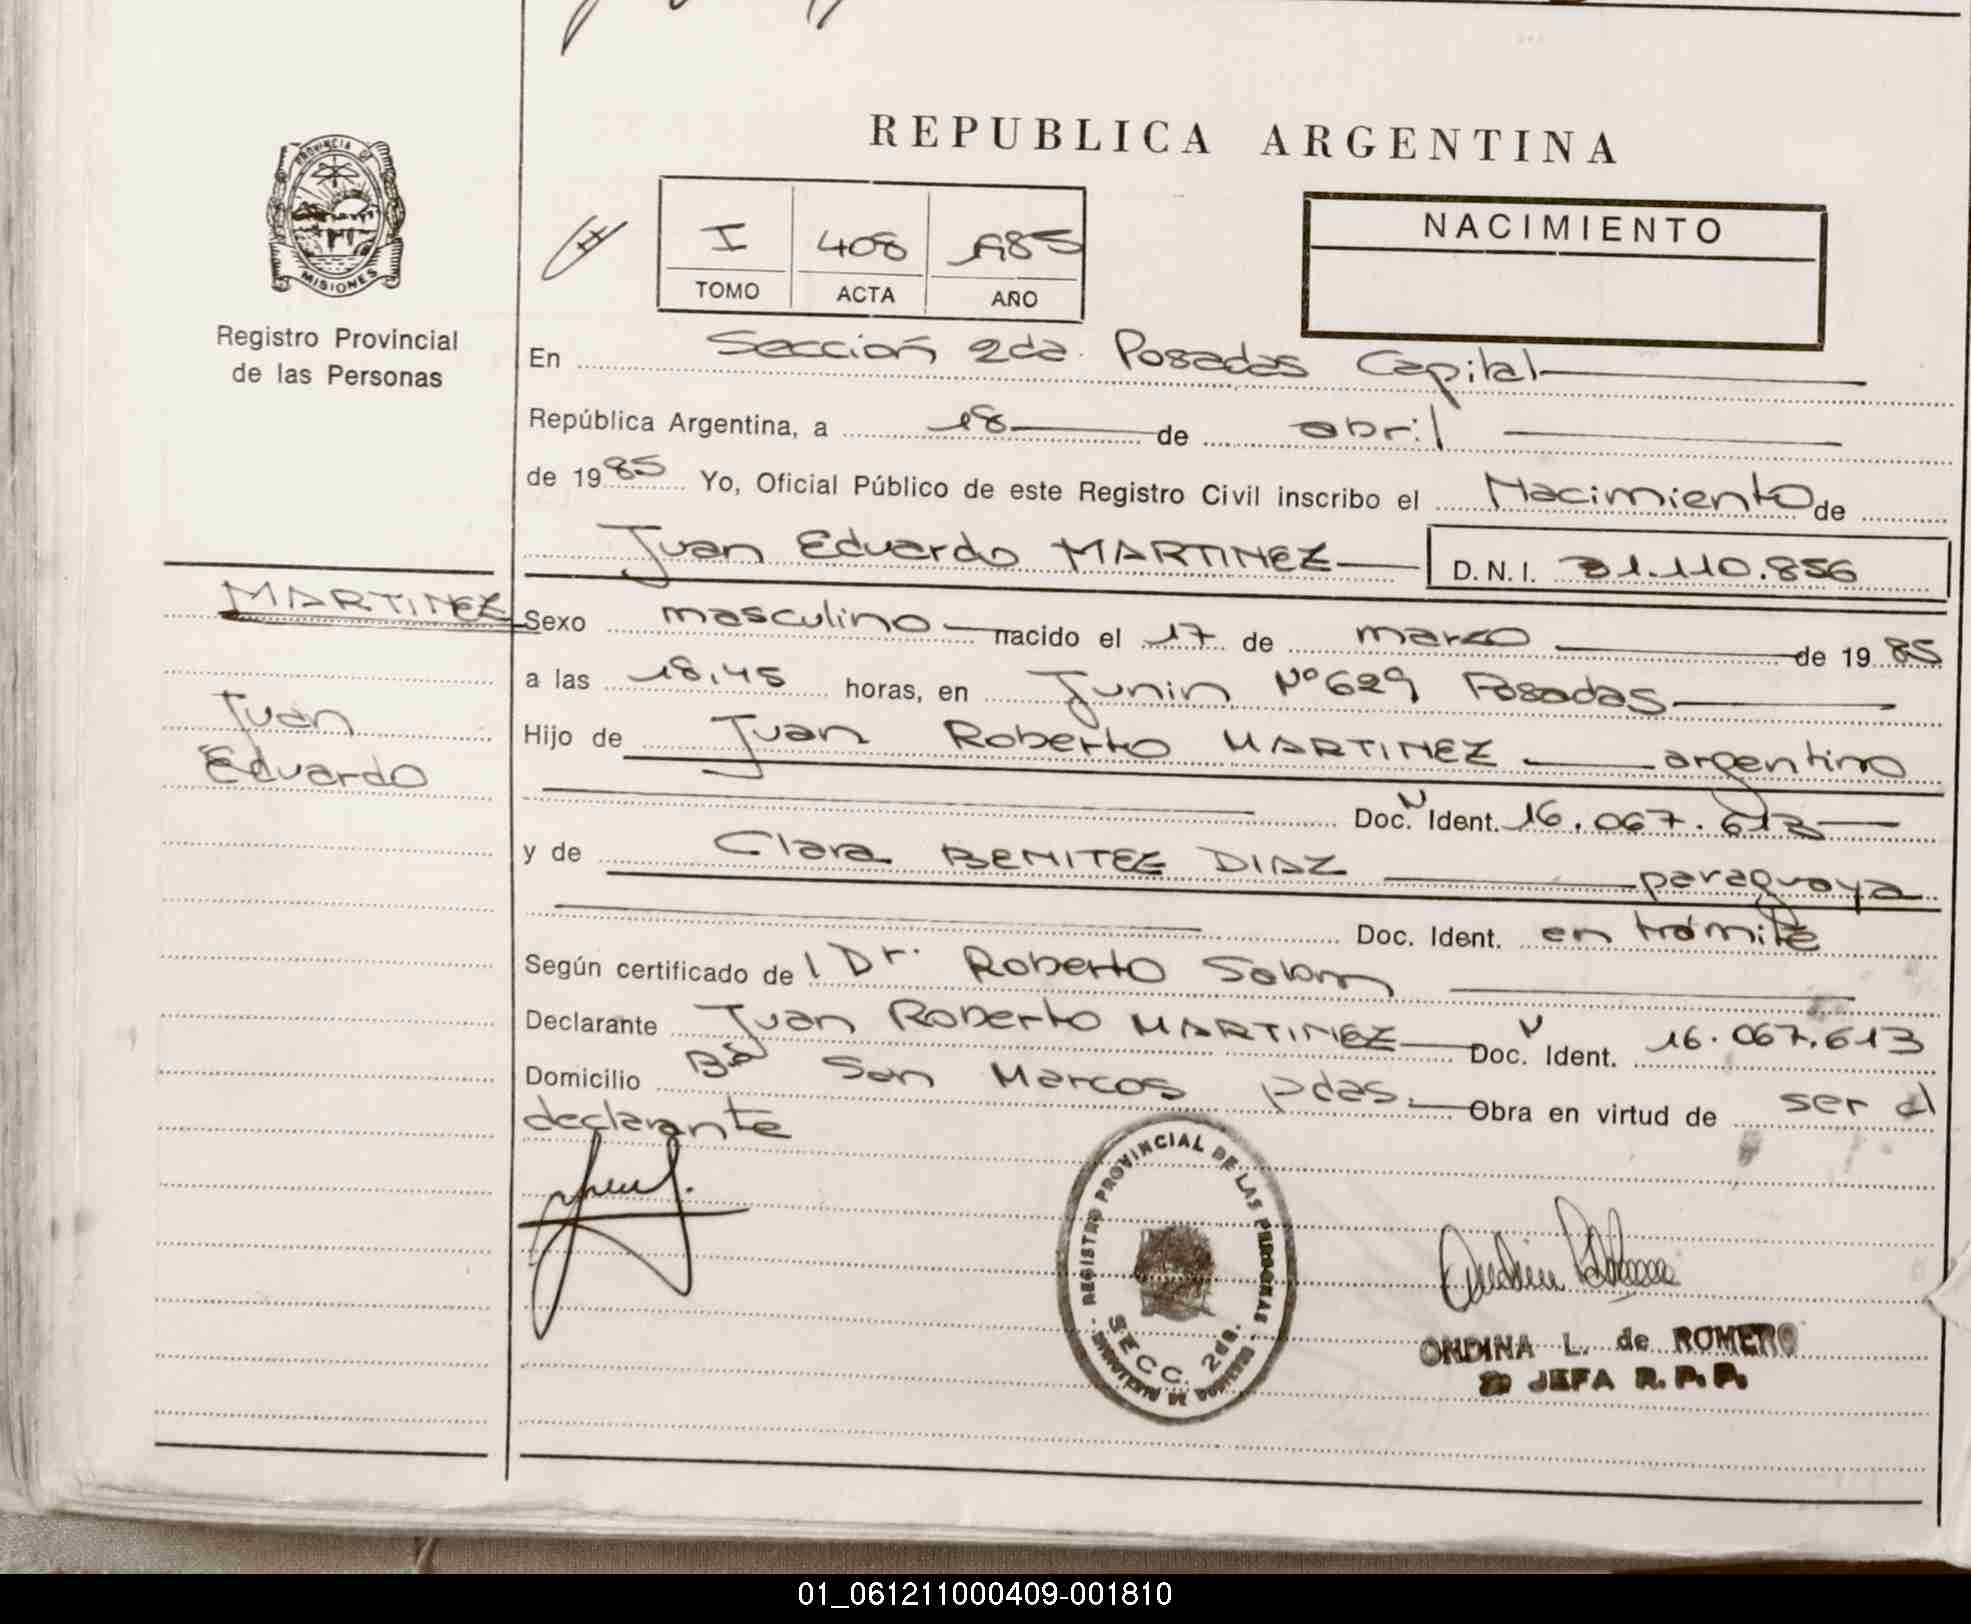 REPUBLICA ARGENTINA
PROVINCIA DE
MISIONES
Registro Provincial
de las Personas
I 408 1985
TOMO ACTA AÑO
NACIMIENTO
En Sección 2da. Posadas Capital
República Argentina, a 18 de abril
de 1985 Yo, Oficial Público de este Registro Civil inscribo el Nacimiento de
Juan Eduardo MARTINEZ D.N.I. 31.110.856
MARTINEZ
Juan
Eduardo
Sexo masculino nacido el 17 de marzo de 1985
a las 18,45 horas, en Junin Nº 629 Posadas
Hijo de Juan Roberto MARTINEZ argentino
Doc. N Ident. 16.067.613
y de Clara BENITEZ DIAZ paraguaya
Doc. Ident. en trámite
Según certificado de l Dr. Roberto
Declarante Juan Roberto MARTINEZ Doc. N Ident. 16.067.613
Domicilio Bº San Marcos Pdas. Obra en virtud de ser el
declarante
REGISTRO PROVINCIAL DE LAS PERSONAS
SECC. 2da.
ONDINA L. de ROMERO
JEFA R. P. P.
01_061211000409-001810